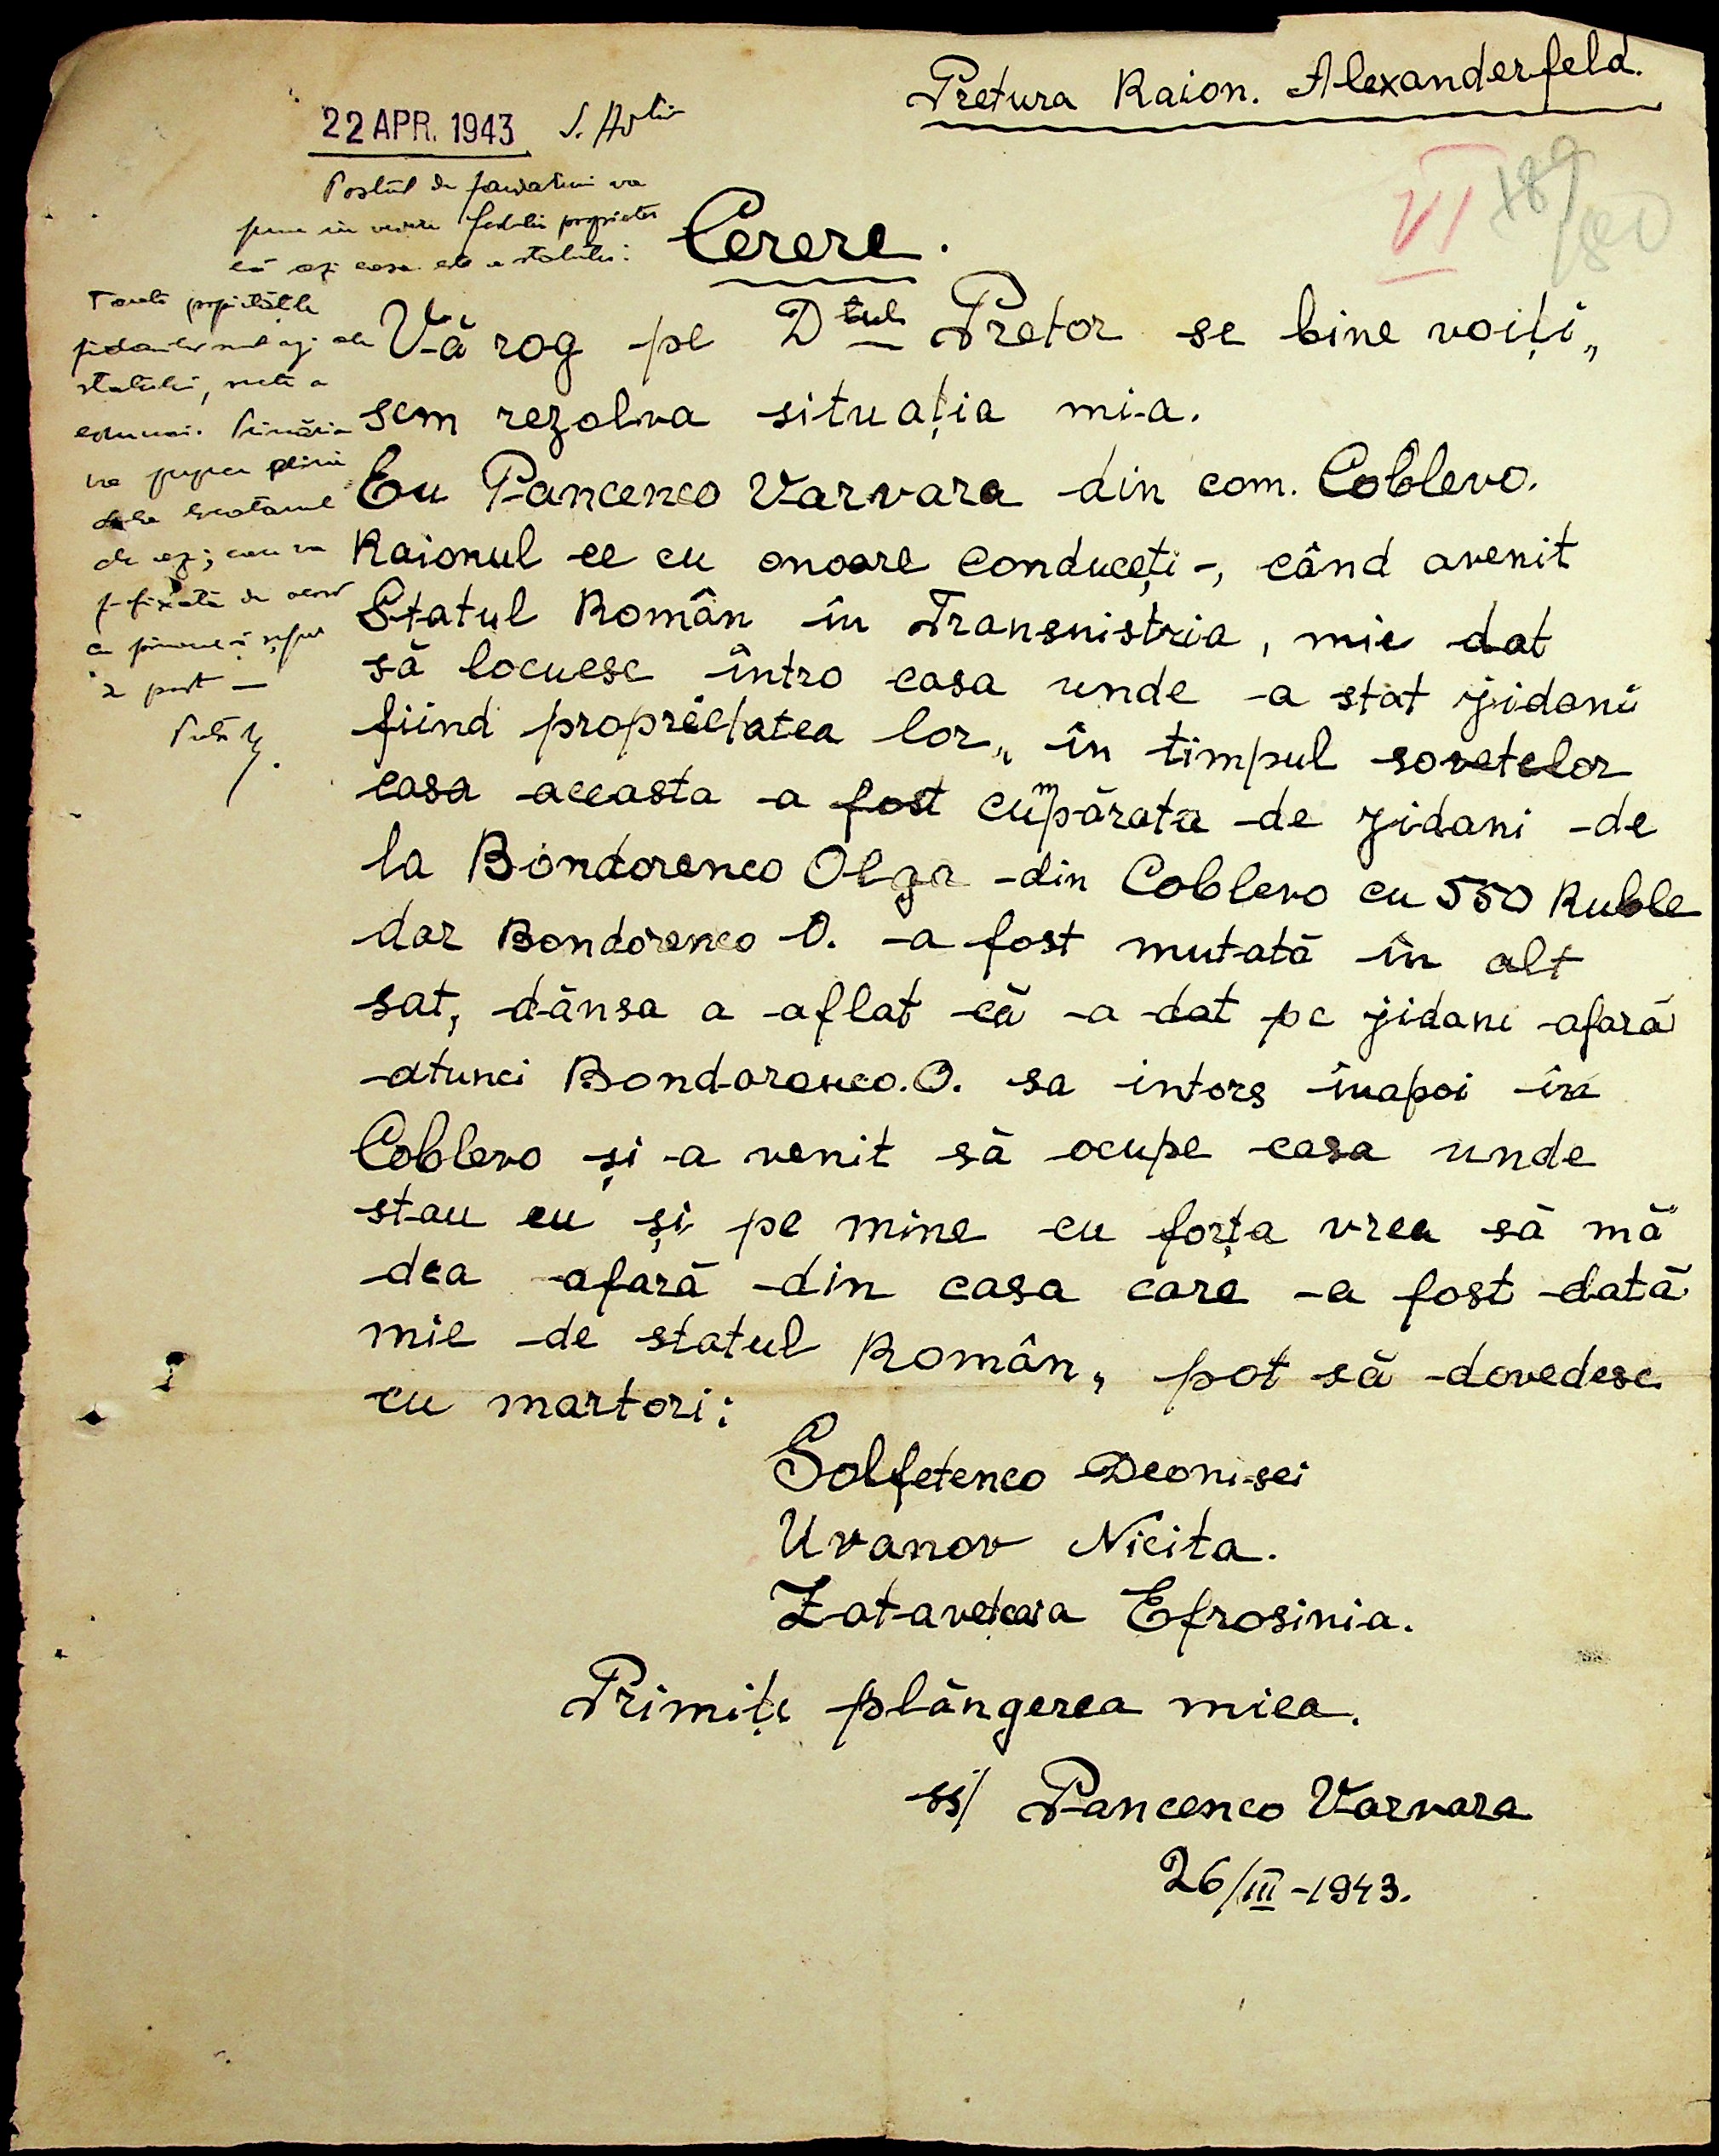 Pretura Raion. Alexanderfeld.
22 APR. 1943
VI 189
180
Postul de jandarmi va
pune în vedere fostului proprietar
că azi casa este a statului.
Toate proprietățile
jidanilor sunt azi ale
statului,
comunei. Primăria
va
de azi; care va
fi fixată de acord
cu
post —
Cerere.
Vă rog pe Dtul Pretor se bine voiți„
sem rezolva situația mi-a.
Eu Pancenco Varvara din com. Coblevo.
Raionul ce cu onoare conduceți-, când avenit
Statul Român în Transnistria, mie dat
să locuesc întro casa unde a stat jidani
fiind proprietatea lor„ în timpul sovetelor
casa aceasta a fost cumpărata de jidani de
la Bondorenco Olga din Coblevo cu 550 Ruble
dar Bondorenco O. a fost mutată în alt
sat, dânsa a aflat că a dat pe jidani afară
atunci Bondarenco. O. sa intors înapoi în
Coblevo și a venit să ocupe casa unde
stau eu și pe mine cu forța vrea să mă
dea afară din casa care a fost dată
mie de statul Român„ pot să dovedesc
cu martori:
Solfetenco Deonisei
Uvanov Nicita.
Zatavețcaia Efrosinia.
Primiți plângerea miea.
ss/ Pancenco Varvara
26/III-1943.